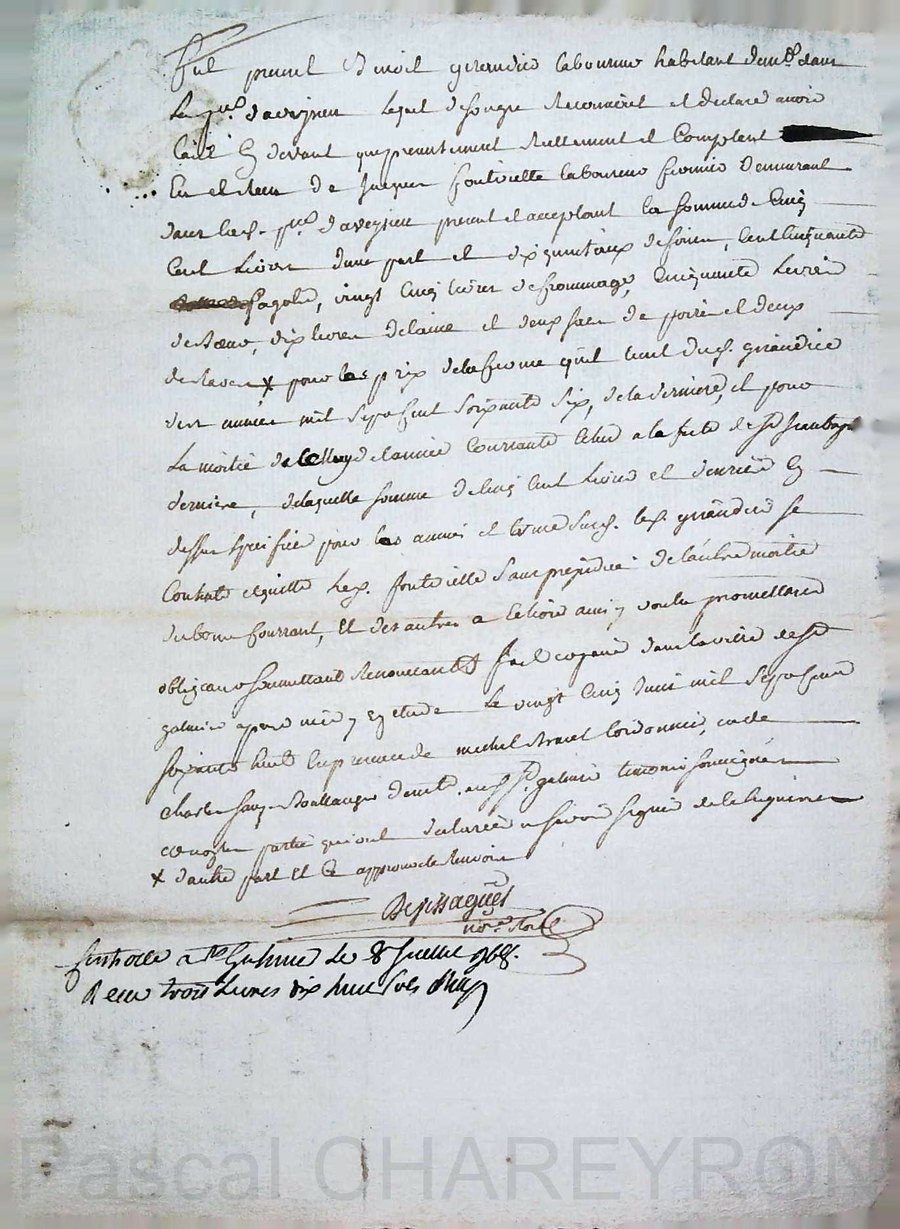 Fut present Benoit girardie laboureur habitant demt dans
la pss d'aveyzieu lequel de son gre Reconnoit et declare avoir
cy devant que presentement Reellement et Comptant
Eu et Receu de Jacques fontvielle laboureur fermier Demeurant
dans lad. pss d'aveyzieu present et acceptant la somme de Cinq
Cent Livres d'une part et dix quintaux de foin, Cent Cinquante
fagots, vingt Cinq livres de frommage, Cinquante Livres
de Beure, dix livres de laine et deux sacs de poires et deux
de Raves x pour les prix de la ferme qu'il tient dud. girardie
des années mil sept cent soixante six, de la derniere, et pour
La moitié de de l'année Courrante Echue a la fete de St Jean Bapt
derniere, de laquelle somme de Cinq Cent Livres et denrées Cy
dessus specifiée pour les années et terme susd. led. girardie se
Contente et quitte led. fontvielle sans prejudice de l'autre moitié
du bome Courrant, Et des autres a Echoir ainsi voulu promettans
obligeans soumettant Renoncant fait et passé dans la ville de St
galmier apres midy Etude le vingt Cinq Juin mil sept cent
soixante huit En presence de michel Cordonnier, et de
charles Boullanger demt aud St galmier temoins soussignés
non les parties qui ont declarées ne scavoir signer de ce Enquises
x d'autre part Et approuvé le Renvoi
Bepissagues
nore Royal
Controlé a St Galmier Le 8 Juillet 1768.
Receu trois Livres dix huit sols
Pascal CHAREYRON